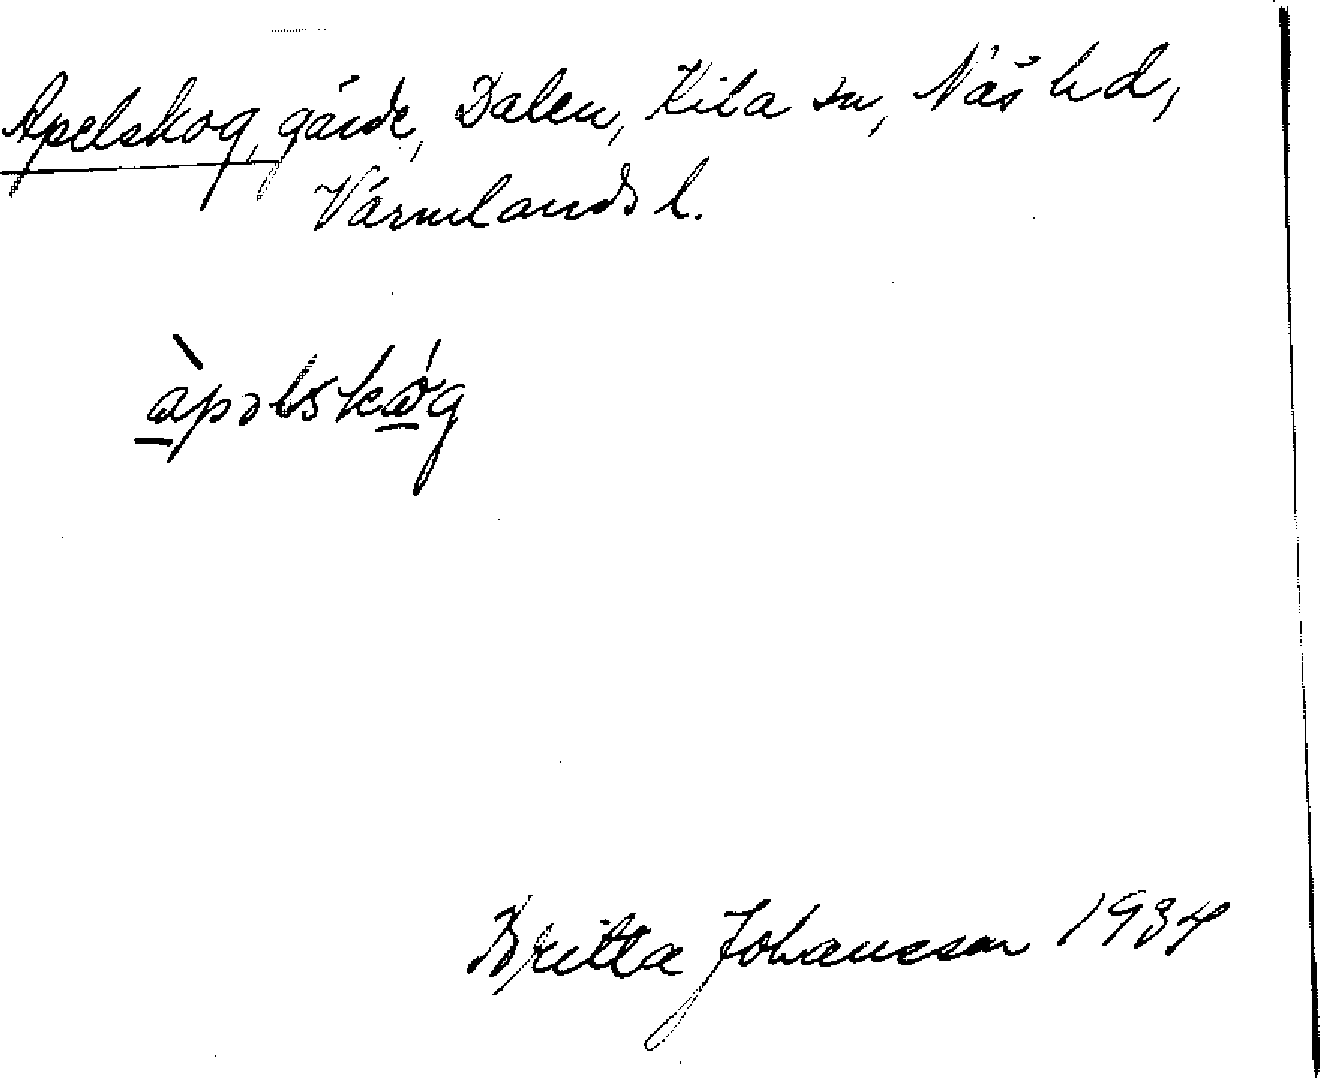 Apelskog, gärde, Dalen, Kila sn, Näs hd,
Värmlands l.
àpəlskó̱g
Britta Johansson 1934